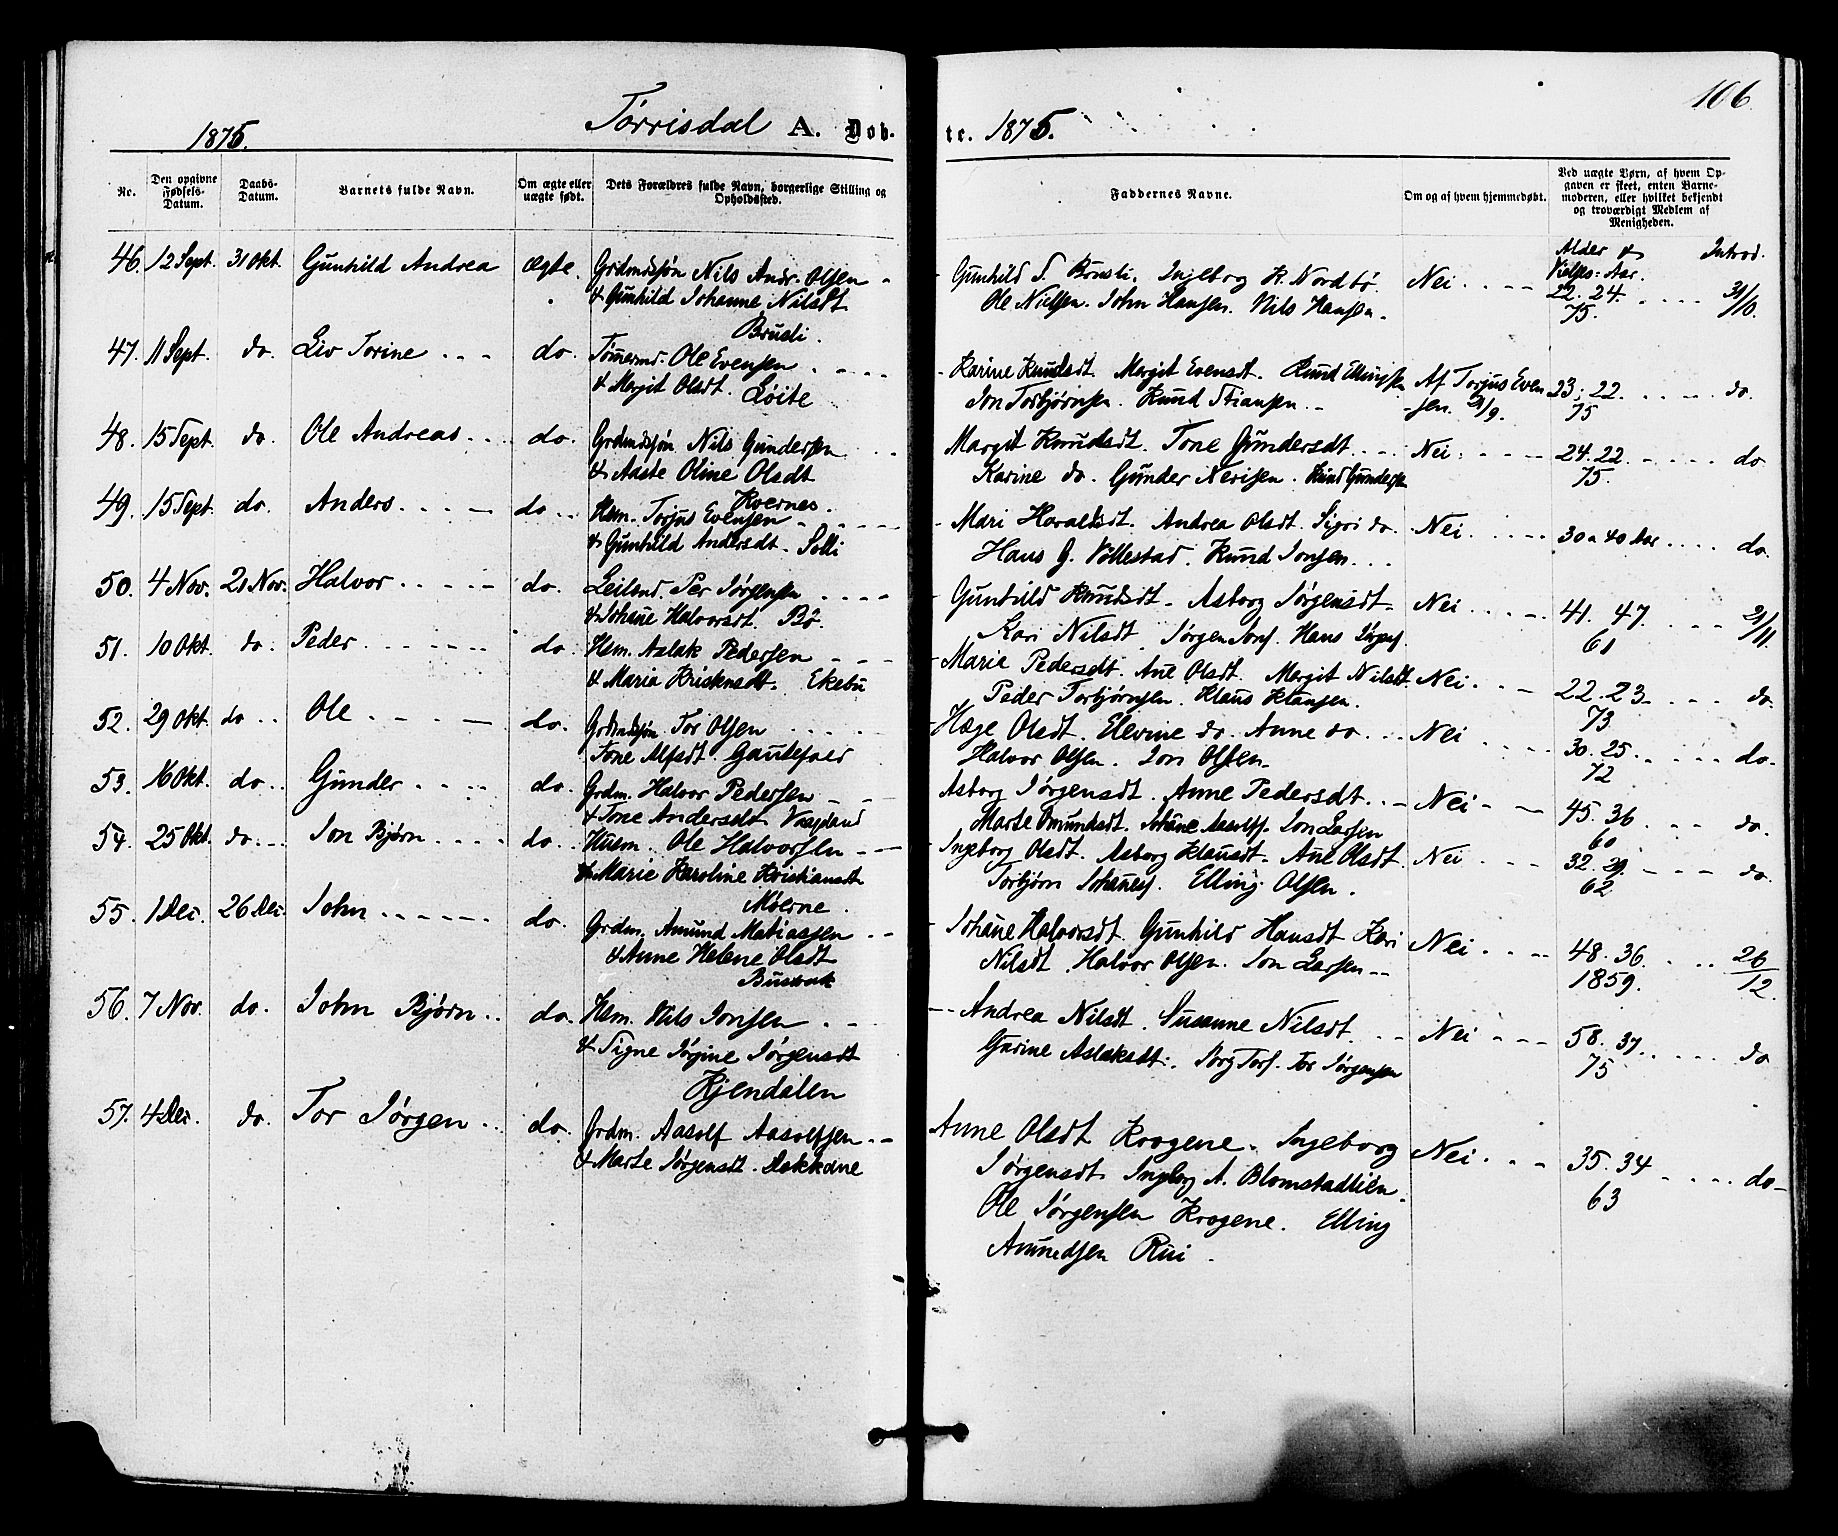 106.
1875.
Tørrisdal A. Dob-
te. 1875.
No.
Den opgivne Fødsels-Datum.
Daabs-Datum.
Barnets fulde Navn.
Om ægte eller uægte født.
Dets Forældres fulde Navn, borgerlige Stilling og Opholdssted.
Faddernes Navne.
Om og af hvem hjemmedøbt.
Ved uægte Børn, af hvem Op-
gaven er skeet, enten Barne-
moderen, eller hvilket bekjendt
og troværdigt Medlem af
Menigheden.
Alder & Vielses-Aar. Introd.
46. 12 Sept. 31 Okt. Gunhild Andrea ægte. Grdmdssøn Nils Andr. Olsen - Gunhild T. Brusli. Ingeborg K. Nordbø. Nei . . . . 22. 24. . . . . 31/10.
& Gunhild Johanne Nilsdt Ole Nielsen. John Hansen. Nils Hansen. 75.
Brusli.
47. 11 Sept. do. Liv Torine . . . do. Tømermd. Ole Evensen . . . . - Karine Knudsdt. Margit Evensdt. Knud Ellingsen Af Torjus Even- 23. 22. . . . . do.
& Margit Olsdt. Løite Jon Torbjørnsen. Knud Stiansen . . sen. 21/9. 75
48. 15 Sept. do. Ole Andreas . . . do. Grdmdssøn Nils Gundersen . . . Margit Knudsdt. Tone Gundersdt . . . . Nei . . . . 24. 22. . . . . do
& Aaste Oline Olsdt Karine do. Gunder Nerisen. Knud Gundersen 75.
Kvernes.
49. 15 Sept. do. Anders . . . . do . . Hsm. Torjus Evensen . . . . - Mari Haraldsdt. Andrea Olsdt. Sigri do. Nei . . . . 30 a 40 Aar . . . . do.
& Gunhild Andersdt. Solli Hans G. Vollestad. Knud Jonsen . . .
50. 4 Nov. 21 Nov. Halvor . . . . do. Leilend. Per Jørgensen . . . . Gunhild Knudsdt. Asborg Jørgensdt. Nei . . . . 41. 47. . . . 21/11.
& Johane Halvorsdt. Bø. Kari Nilsdt. Jørgen Jons. Hans Jørgs. 61
51. 10 Okt. do. Peder . . . . . do. Hsm. Aslak Pedersen . . . - Marie Pedersdt. Ane Olsdt. Margit Nilsdt. Nei . . . 22. 23. . . . do.
& Maria Kristensdt. Ekebu Peder Torbjørnsen. Klaus Klausen. 73
52. 29 Okt. do . . Ole . . . . do. Grdmdssøn Tor Olsen . . . . - Hæge Olsdt. Elevine do. Anne do . . . Nei . . . . 30. 25. . . . . do.
Tone Alfsdt. Gautefald Halvor Olsen. Jon Olsen. 72
53. 16 Okt. do . . Gunder . . . . do. Grdm. Halvor Pedersen . . . Asborg Jørgensdt. Anne Pedersdt . . . Nei . . 45. 36 . . . do.
& Tone Andersdt. Vragland Marte Omundsdt. Johane Aasolfs. Jon Larsen 60
54. 25 Okt. do . . . Jon Bjørn . . . . do. Husm. Ole Halvorsen . . - Ingeborg Olsdt. Asborg Klausdt. Ane Olsdt. Nei . . . 32. 29. . . . do.
& Marie Karoline Kristiansdt Torbjørn Johanes. Elling Olsen. 62
Moerne.
55. 1 Dec. 26 Dec. John . . . . . do. Grdm. Amund Matiassen . . - Johane Halvorsdt. Gunhild Hansdt. Kari Nei . . . . 48. 36. . . . 26/12.
& Anne Helene Olsdt Nilsdt. Halvor Olsen. Jon Larsen . . 1859.
56. 7 Nov. do. John Bjørn . . do. Hsm. Nils Jonsen . . . -- Andrea Nilsdt. Susanne Nilsdt . . . . Nei . . . 58. 37. . . . . do
& Signe Jørgine Jørgensdt Gurine Aslaksdt. Jørg Tors. Tor Jørgensen 75
Kjendalen
57. 4 Dec. do. Tor Jørgen . . do. Grdm. Aasolf Aasolfsen . . Anne Olsdt Krogene. Ingeborg Nei . . . 35. 34 . . . . do-
& Marte Jørgensdt. Dokkane Jørgensdt. Ingborg A. Blomstadlien. 63
Ole Jørgensen Krogene. Elling
Amundsen Rui.